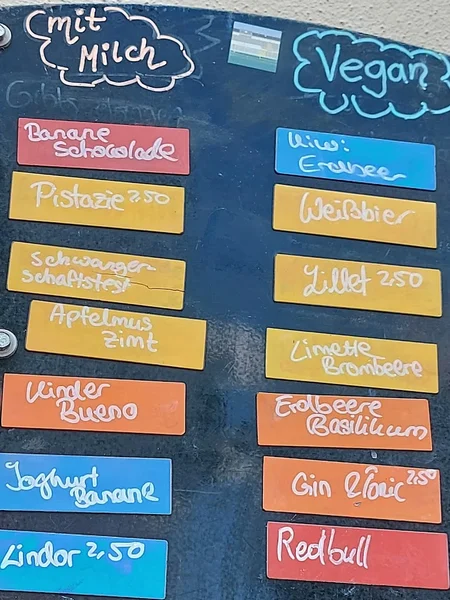 mit
Milch
Banane
Schocolade
Pistazie 2,50
Schwanger-
schaftstest
Apfelmus
Zimt
Kinder
Bueno
Joghurt
Banane
Lindor 2,50
Vegan
Kiwi:
Erdbeer
Weißbier
Lillet 2,50
Limette
Brombeere
Erdbeere
Basilikum
Gin & Tonic 2,50
Redbull